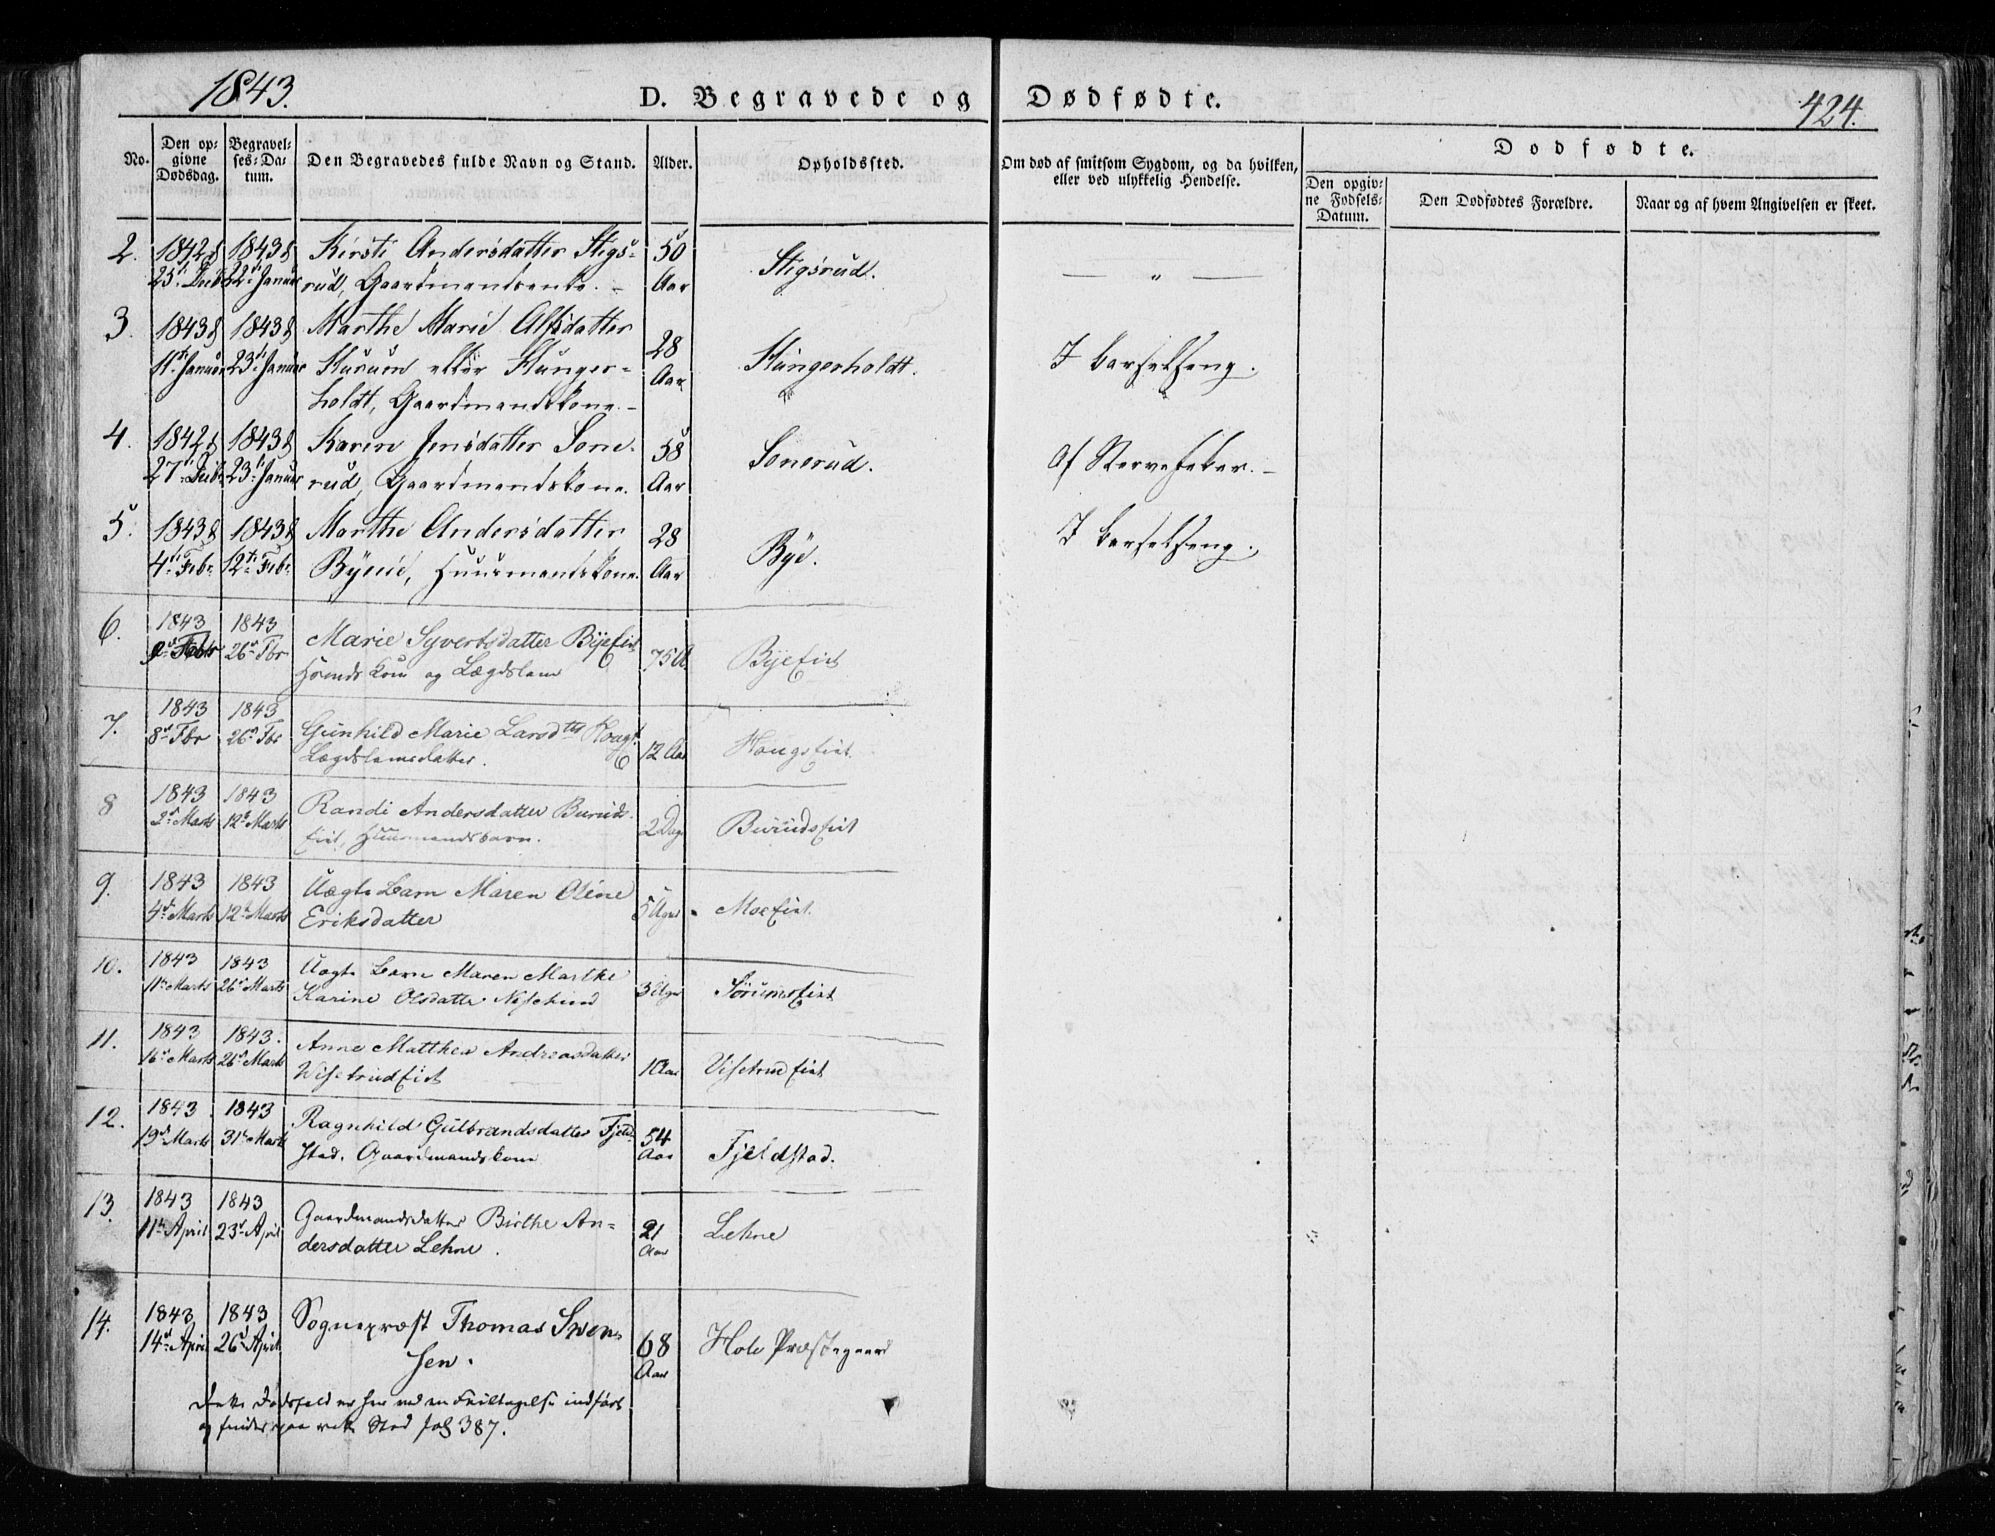 1843.
D. Begravede og Dødfødte.
424.
No.
Den opgivne Dødsdag.
Begravelses-Datum.
Den Begravedes fulde Navn og Stand.
Alder.
Opholdssted.
Om død af smitsom Sygdom, og da hvilken, eller ved ulykkelig Hendelse.
Dødfødte.
Den opgivne Fødsels-Datum.
Den Dødfødtes Forældre.
Naar og af hvem Angivelsen er skeet.
2. 1842 1843 Kirsti Andersdatter Stigs- 50
25 22 Januar rud, Gaardmandsenke. Aar Stigsrud. — " —
3. 1843 1843 Marthe Marie Alfsdatter 28
11 Januar 23 Januar eller Stunger- Aar Stungerholdt. I barselseng.
holdt, Gaardmandskone.
4. 1842 1843 Karen Jensdatter Sone- 58 Sonerud. Af Nervefeber.
27 23 Januar rud, Gaardmandskone. Aar
5. 1843 1843 Marthe Andersdatter 28 Bye. I barselseng.
4 Febr 12 Febr Huusmandskone. Aar
6. 1843 1843 Marie Syvertsdatter Byeeiet 75 A Byeeiet
26 Fbr og Lægdslem
7. 1843 1843 Gunhild Marie Larsdtr 12 Aar Haugseiet
8 Fbr 26 Fbr Lægdslemsdatter.
8 1843 1843 Randi Andersdatter Buruds- 2 Dage Burudseiet
Marts 12 Marts eiet, Huusmandsbarn.
9. 1843 1843 Uægte Barn Maren Oline 5 Uger Moeeiet.
4 Marts 12 Marts Eriksdatter
10. 1843 1843 Uægte Barn Maren Marthe 3 Uger Sørumseiet
11 Marts 26 Marts Karine Olsdatter
11. 1843 1843. Anne Matthea Andreasdatter 1 Aar Viseterudeiet
16 Marts 26 Marts Wiseterudeiet
12. 1843 1843 Ragnhild Gulbrandsdatter Fjeld- 54 Aar Fjeldstad.
19 Marts 31 Marts stad. Gaardmandskone
13. 1843 1843 Gaardmandsdatter Birthe An- 21 Aar Lehne
11 April 23 April dersdatter Lehne.
14. 1843 1843 Sognepræst Thomas Swen- 68 Aar Hole Præstegaard
14 April 26 April sen.
Dette Dødsfald er her ved en Feiltagelse indført
og findes paa rette Sted fol 387.